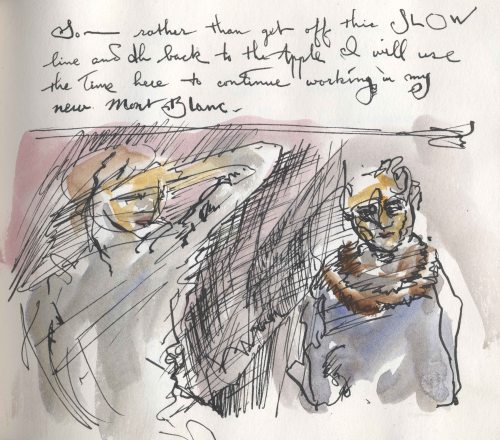 So — rather than get off this SLOW
line and back to the Apple I will use
the time here to continue working in my
new Mont Blanc.